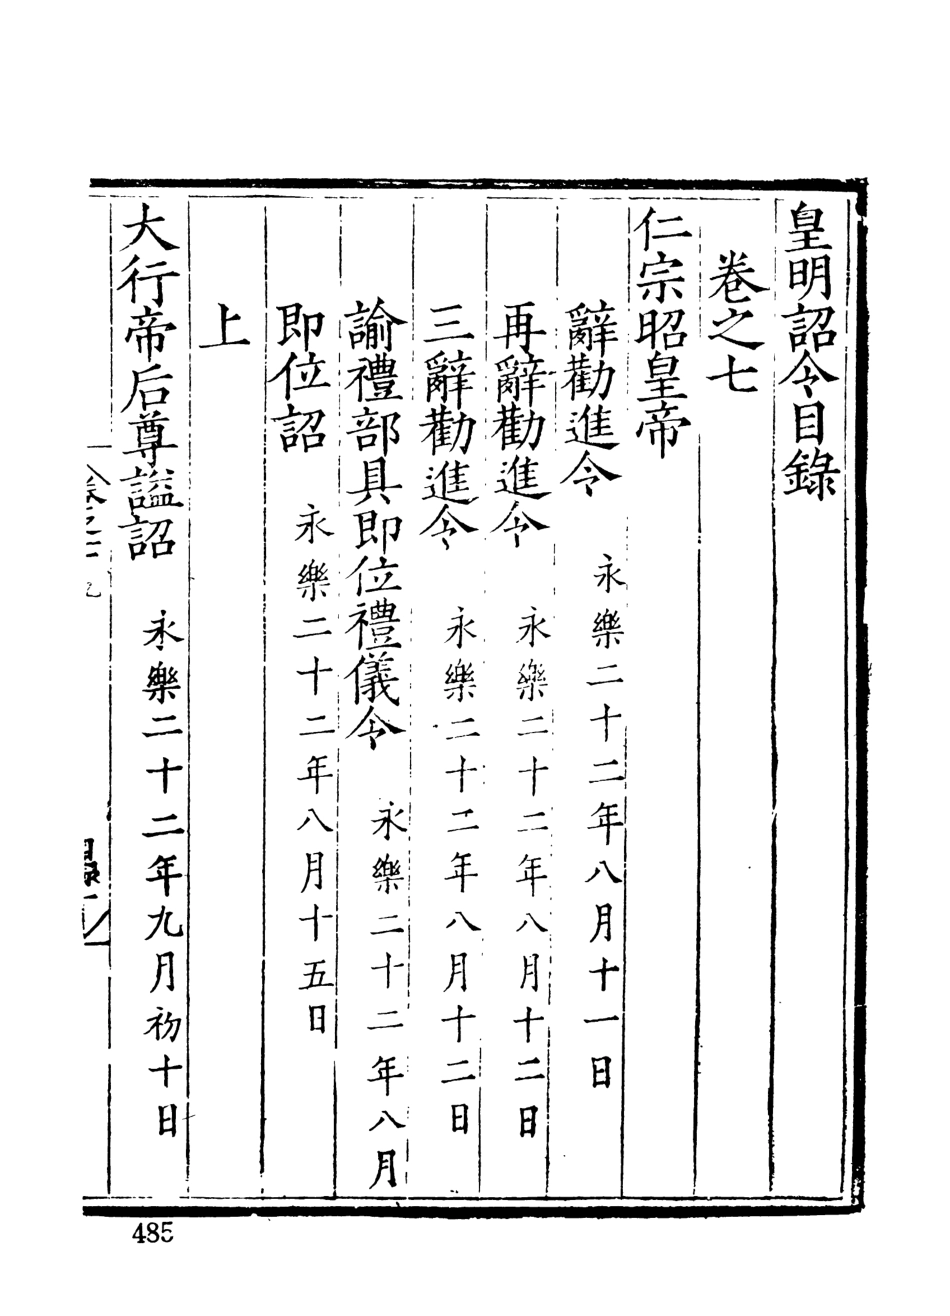 皇明詔令目錄
卷之七
仁宗昭皇帝
辭勸進令 永樂二十二年八月十一日
再辭勸進令 永樂二十二年八月十二日
三辭勸進令 永樂二十二年八月十二日
諭禮部具即位禮儀令 永樂二十二年八月
即位詔 永樂二十二年八月十五日
上
大行帝后尊謚詔 永樂二十二年九月初十日
485